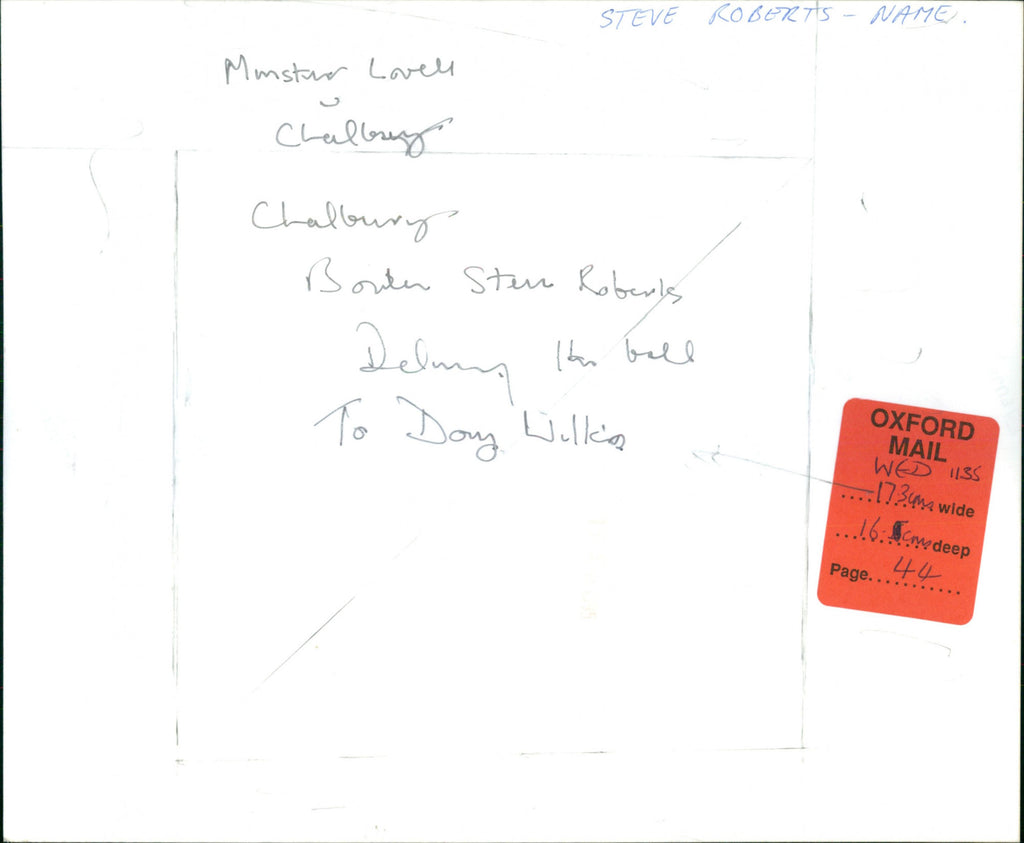 STEVE ROBERTS - NAME.
Minster Lovell
v
Chalbury
Chalbury
Bowler Steve Roberts
Delivery the ball
To Doug Wilkins
OXFORD
MAIL
WED 1135
173cms wide
16.5cms deep
Page 44